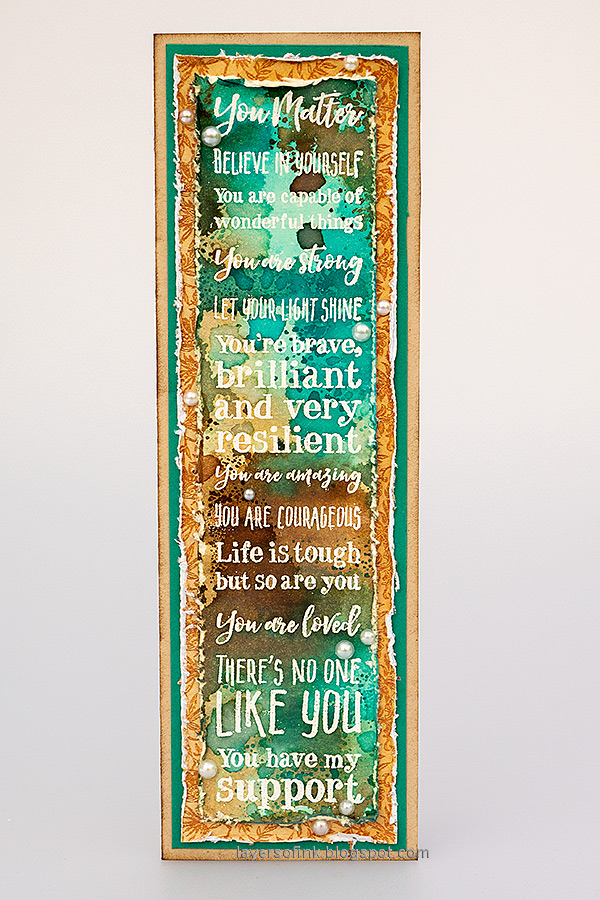 You Matter
BELIEVE IN YOURSELF
You are capable of
wonderful things
You are strong
LET YOUR LIGHT SHINE
You're brave,
brilliant
and very
resilient
You are amazing
YOU ARE COURAGEOUS
Life is tough
but so are you
You are loved
THERE'S NO ONE
LIKE YOU
You have my
support
layersofink.blogspot.com